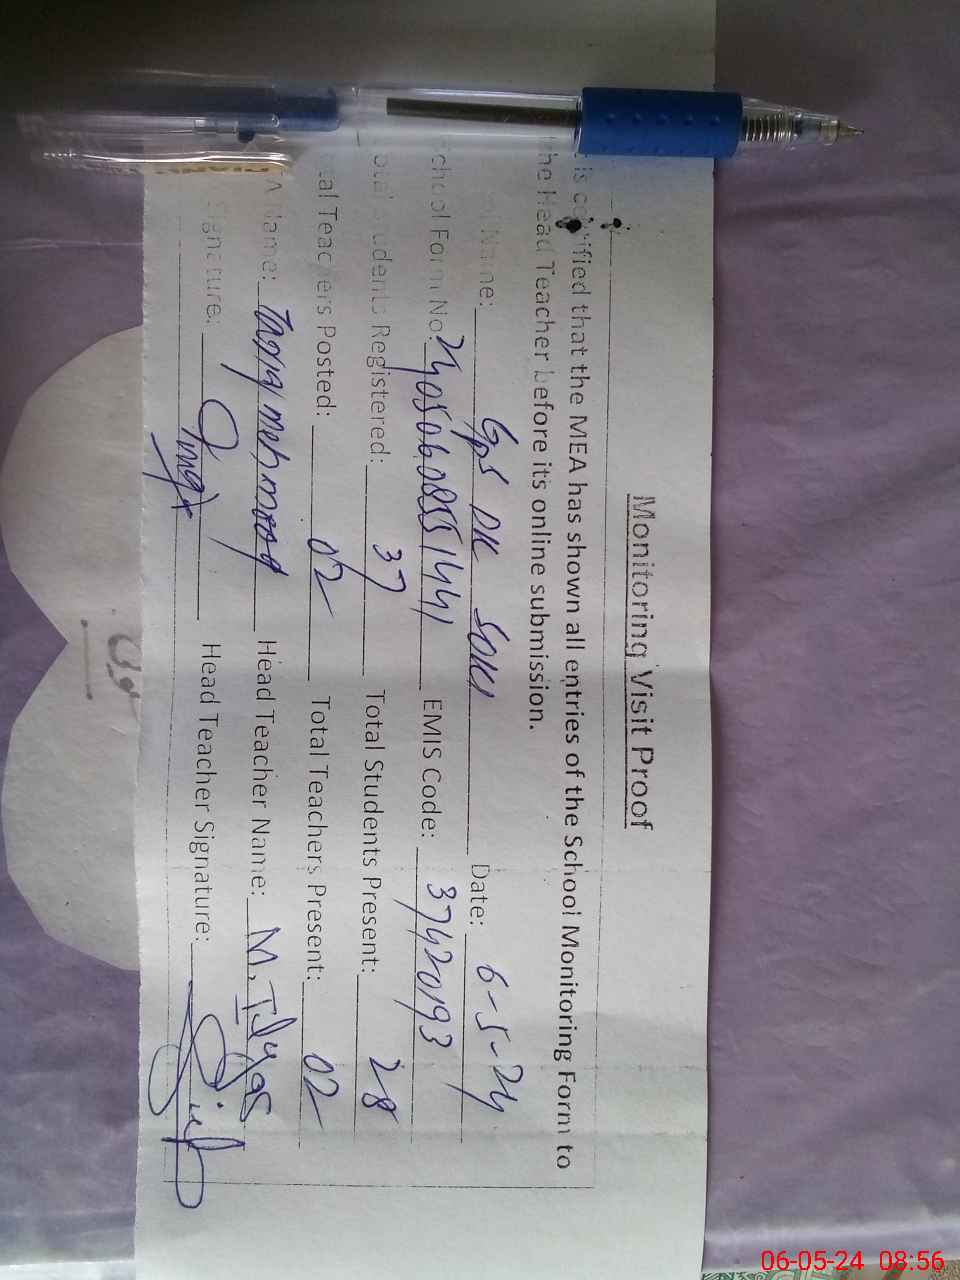 Monitoring Visit Proof
is certified that the MEA has shown all entries of the School Monitoring Form to
the Head Teacher before its online submission.
Name: GPS DK SOKI Date: 6-5-24
School Form No: 24050608551441 EMIS Code: 37420193
Total Students Registered: 37 Total Students Present: 28
Total Teachers Posted: 02 Total Teachers Present: 02
A Name: Tariq mehmood Head Teacher Name: M. Ilyas
Signature: Head Teacher Signature:
06-05-24 08:56